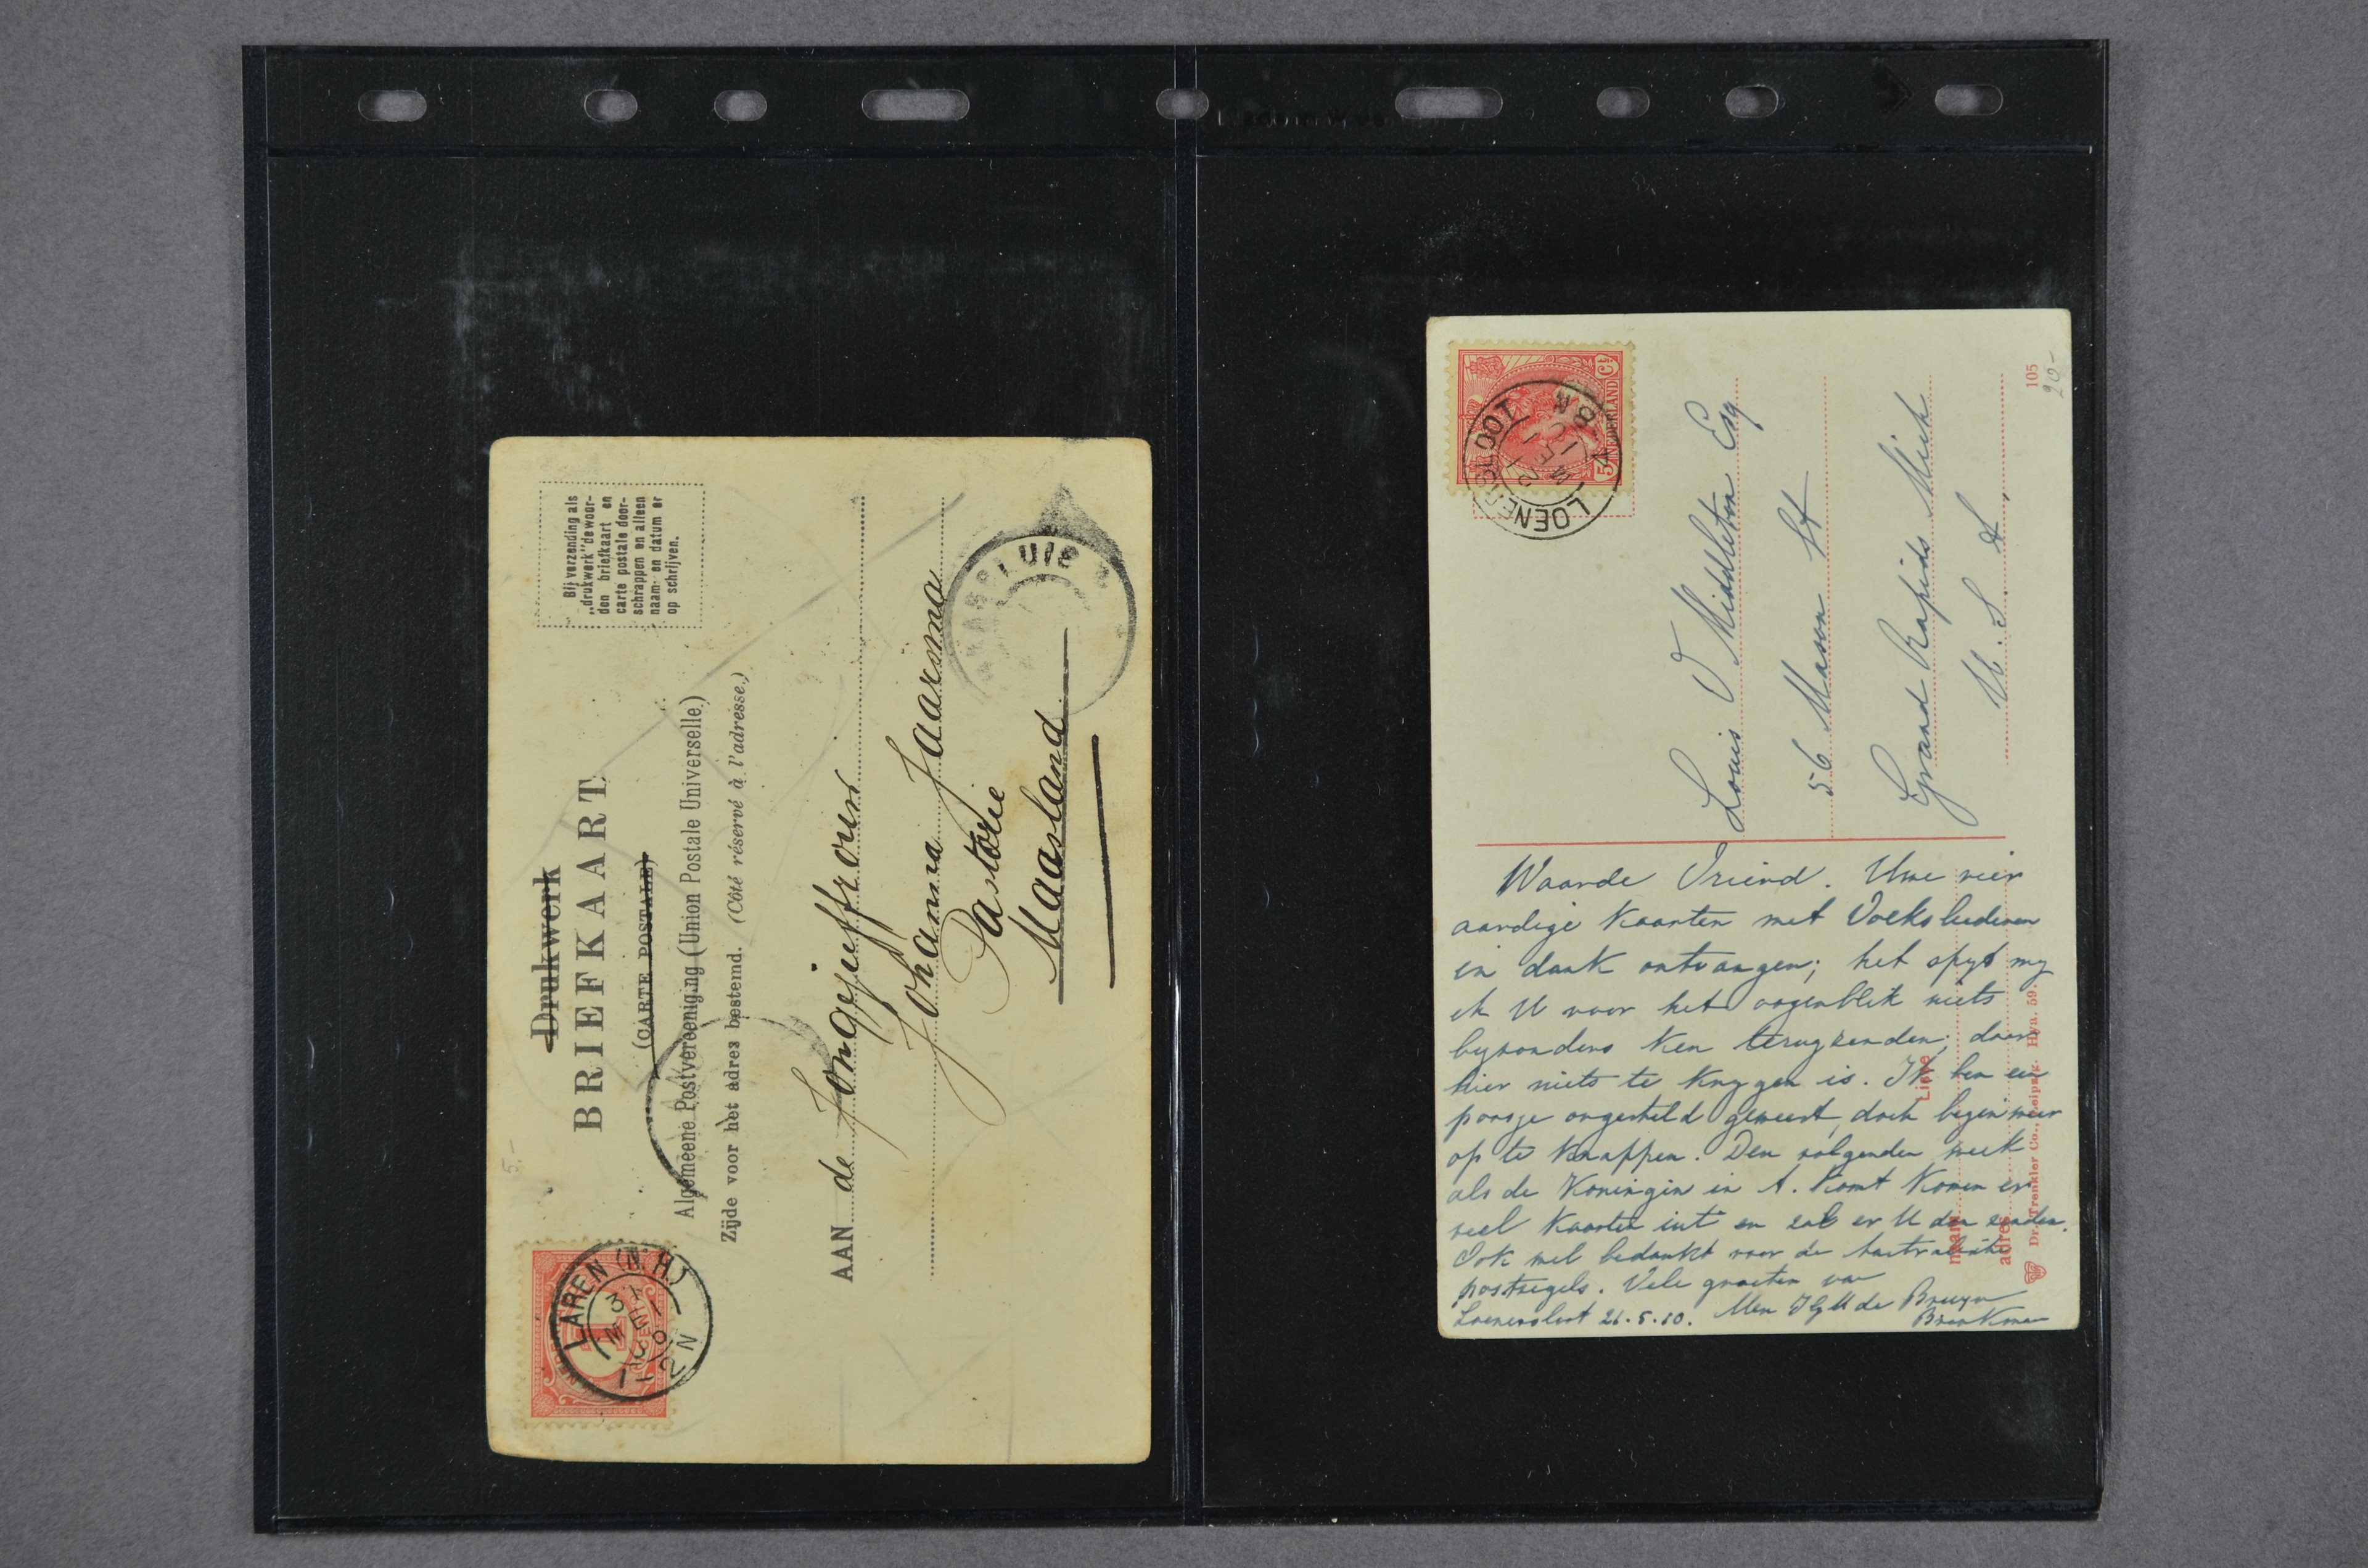 Drukwerk
BRIEFKAART
(CARTE POSTALE)
Algemeene Postvereeniging (Union Postale Universelle.)
Zijde voor het adres bestemd. (Côté réservé à l'adresse.)
Bij verzending als
„drukwerk" de woor-
den briefkaart en
carte postale door-
schrappen en alleen
naam- en datum er
op schrijven.
LAREN (N.H.)
31
MEI
2 N
5.-
AAN de Jongejuffrouw
Johanna Jaarsma
Pastorie
Maasland
MAASSLUIS
NEDERLAND
LOENERSLOOT
Louis V Middleton Esq
56 Mason St
Grand Rapids Mich
U. S. A.
105
20-
Waarde Vriend. Uwe vier
aardige kaarten met Volksliederen
in dank ontvangen; het spyt my
ik U voor het oogenblik niets
byzonders ken terugzenden; daar
hier niets te krygen is. Ik ben een
poosje ongesteld geweest, doch begin weer
op te knappen. Den volgenden week
als de Koningin in A. komt komen er
veel kaarten uit en zal er U dan zenden.
Ook wel bedankt voor de
postzegels. Vele groeten van
Loenersloot 21.5.10. de Bruyn
Brinkman
Liefde
naam
adres
Dr. Trenkler Co., Leipzig. Hva. 59.